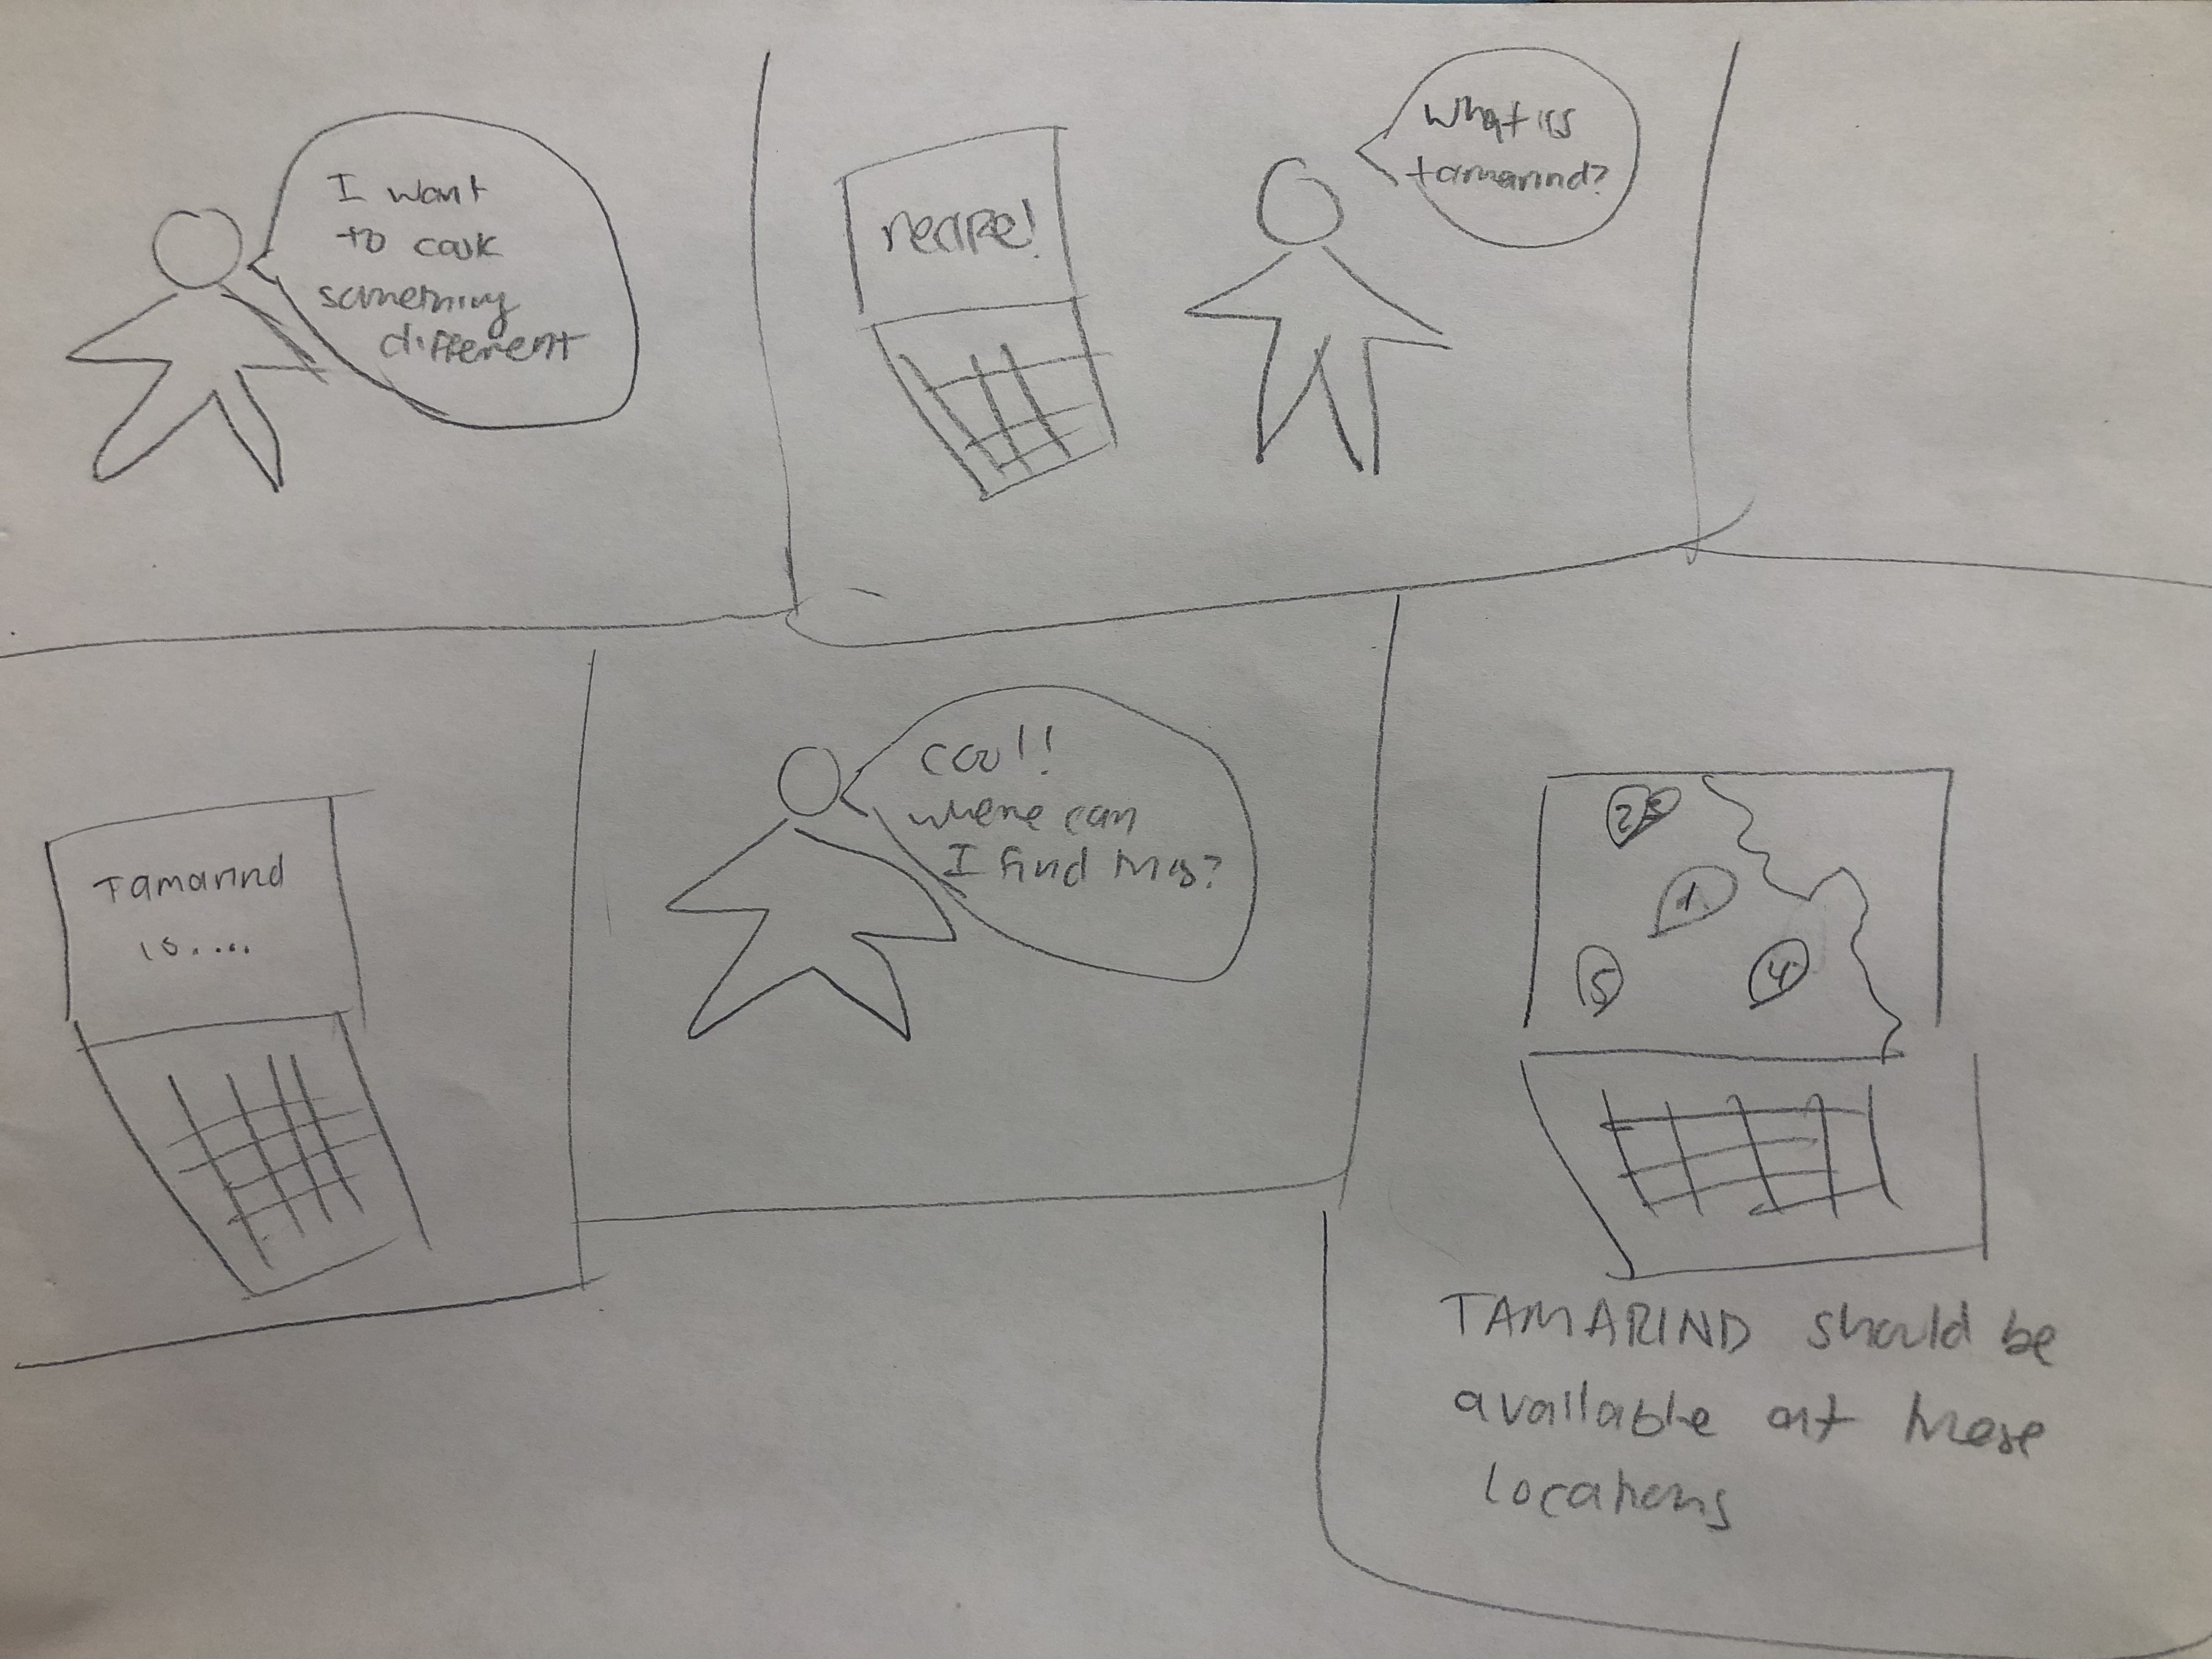 I want
to cook
something
different
recipe!
What is
tamarind?
Tamarind
is....
cool!
where can
I find this?
2
1.
5
4
TAMARIND should be
available at these
locations